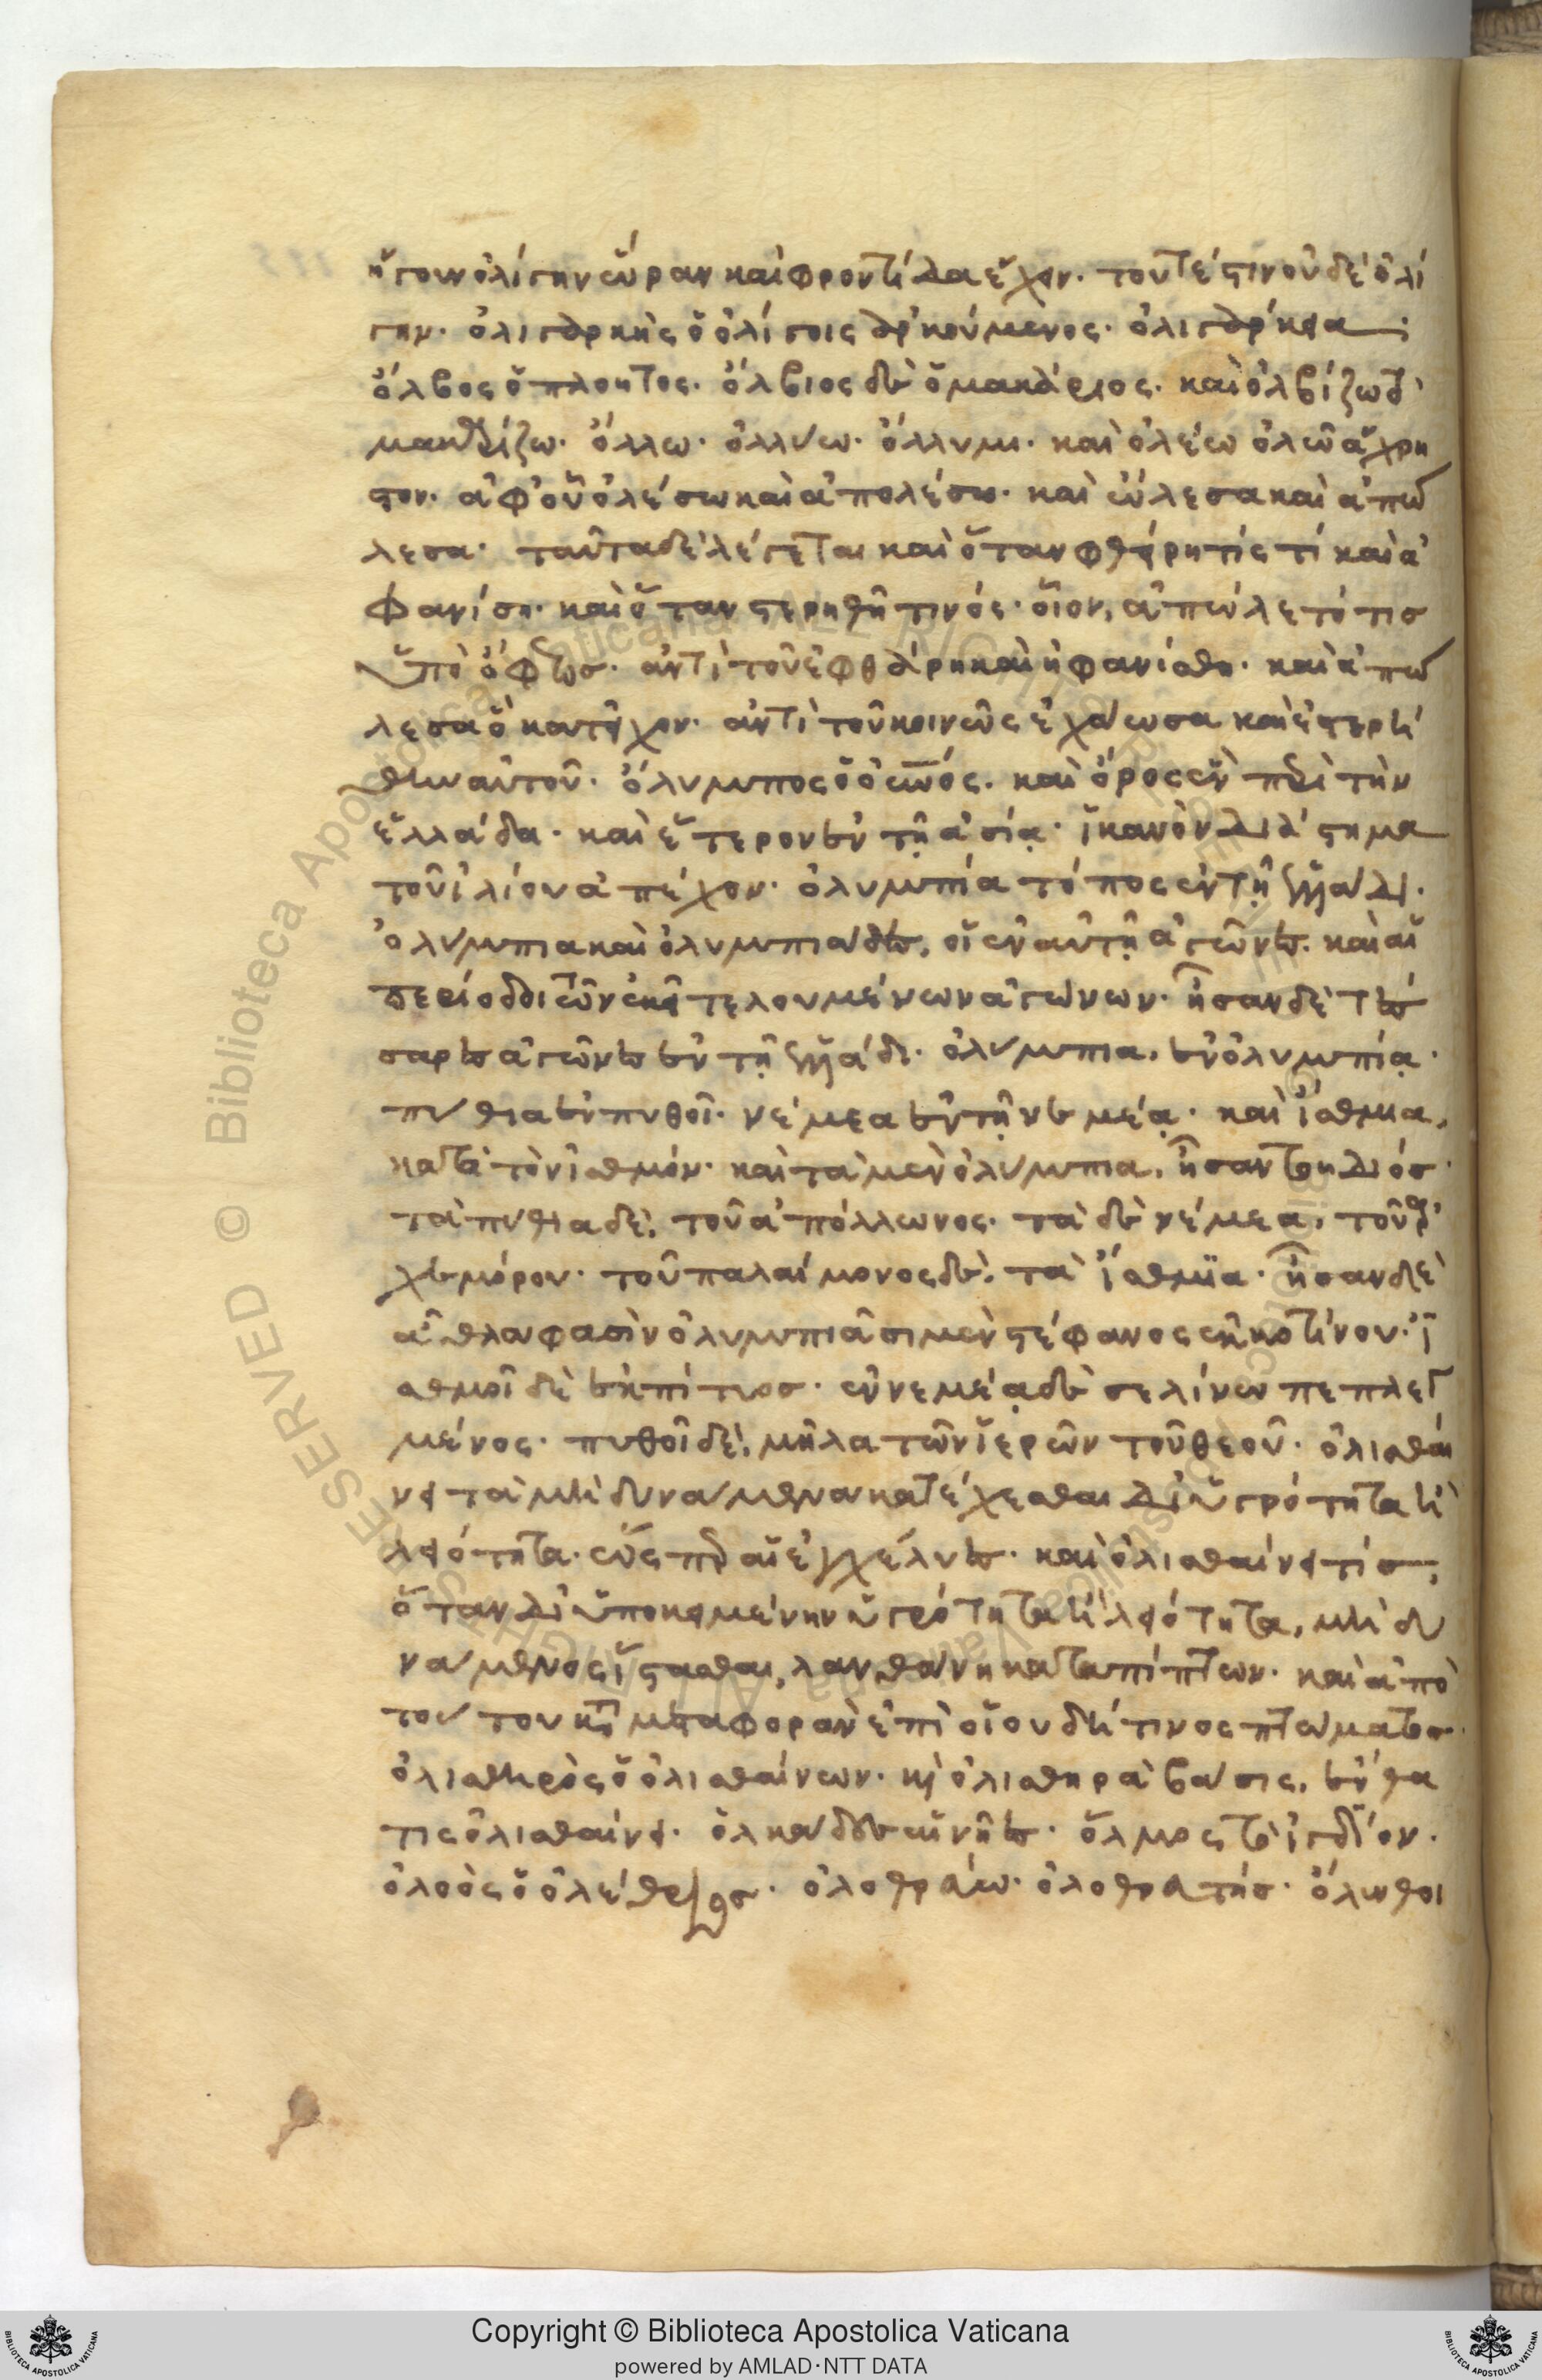 ἤγουν ὀλίγην ὥραν καὶ φροντίδα ἔχον. τουτέστιν οὐδὲ ὀλί
γην. ὀλιγαρκὴς ὁ ὀλίγοις ἀρκούμενος. ὀλιγάρκεια:
ὄλβος ὁ πλοῦτος. ὄλβιος δὲ ὁ μακάριος. καὶ ὀλβίζω τὸ
μακαρίζω. ὄλλω. ὀλλύω. ὄλλυμι. καὶ ὀλέω ὀλῶ ἄχρη
στον. ἀφ' οὗ ὀλέσω καὶ ἀπολέσω. καὶ ὤλεσα καὶ ἀπώ
λεσα. ταῦτα δὲ λέγεται καὶ ὅταν φθείρη τίς τί καὶ ἀ
φανίση. καὶ ὅταν στερηθῆ τινός. οἷον, ἀπώλετό τισ
ὑπὸ ὄφεωσ. ἀντὶ τοῦ ἐφθάρη καὶ ἠφανίσθη. καὶ ἀπώ
λεσα ὃ κατεῖχον. ἀντὶ τοῦ κοινῶς ἐχάωσα καὶ ἐστερή
θην αὐτοῦ. ὄλυμπος ὁ οὐρανός. καὶ ὄρος ἓν περὶ τὴν
ἑλλάδα. καὶ ἕτερον ἐν τῆ ἀσία. ἱκανὸν διάστημα
τοῦ ἰλίου ἀπέχον. ὀλυμπία τόπος ἐν τῆ ἑλλάδι.
ὀλύμπια καὶ ὀλυμπιάδες, οἱ ἐν αὐτῆ ἀγῶνες. καὶ αἱ
περίοδοι τῶν ἐκεῖ τελουμένων ἀγώνων. ἦσαν δὲ τέσ
σαρες ἀγῶνες ἐν τῆ ἑλλάδι. ὀλύμπια, ἐν ὀλυμπία.
πύθια ἐν πυθοῖ. νέμεα ἐν τῆ νεμέα. καὶ ἴσθμια,
κατὰ τὸν ἰσθμόν. καὶ τὰ μὲν ὀλύμπια, ἦσαν τοῦ διόσ.
τὰ πύθια δὲ, τοῦ ἀπόλλωνος. τὰ δὲ νέμεα, τοῦ ἀρ
χεμόρου. τοῦ παλαίμονος δὲ, τὰ ἴσθμια. ἦσαν δὲ
ἆθλα φασὶν ὀλυμπιᾶσι μὲν στέφανος ἐκ κοτίνου. ἰ
σθμοῖ δὲ ἐκ πίτυοσ. ἐν νεμέα δὲ σελίνω πεπλεγ
μένος. πυθοῖ δὲ, μῆλα τῶν ἱερῶν τοῦ θεοῦ. ὀλισθαί
νει τὰ μὴ δυνάμενα κατέχεσθαι δι' ὑγρότητα ἢ
λειότητα. ὥσπερ αἱ ἐγχέλυες. καὶ ὀλισθαίνει τίσ,
ὅταν δι' ὑποκειμένην ὑγρότητα ἢ λειότητα, μὴ δυ
νάμενος ἵστασθαι, λανθάνη καταπίπτων. καὶ ἀπὸ
τούτου κατὰ μεταφορὰν ἐπὶ οἵου δή τινος πτώματοσ.
ὀλισθηρὸς ὁ ὀλισθαίνων. καὶ ὀλισθηρὰ βάσις, ἔνθα
τις ὀλισθαίνει. ὁλκάδες αἱ νῆες. ὅλμος τὸ ἰγδίον.
ὀλοὸς ὁ ὀλέθριοσ. ὀλοθρεύω. ὀλοθρευτήσ. ὄλυνθοι